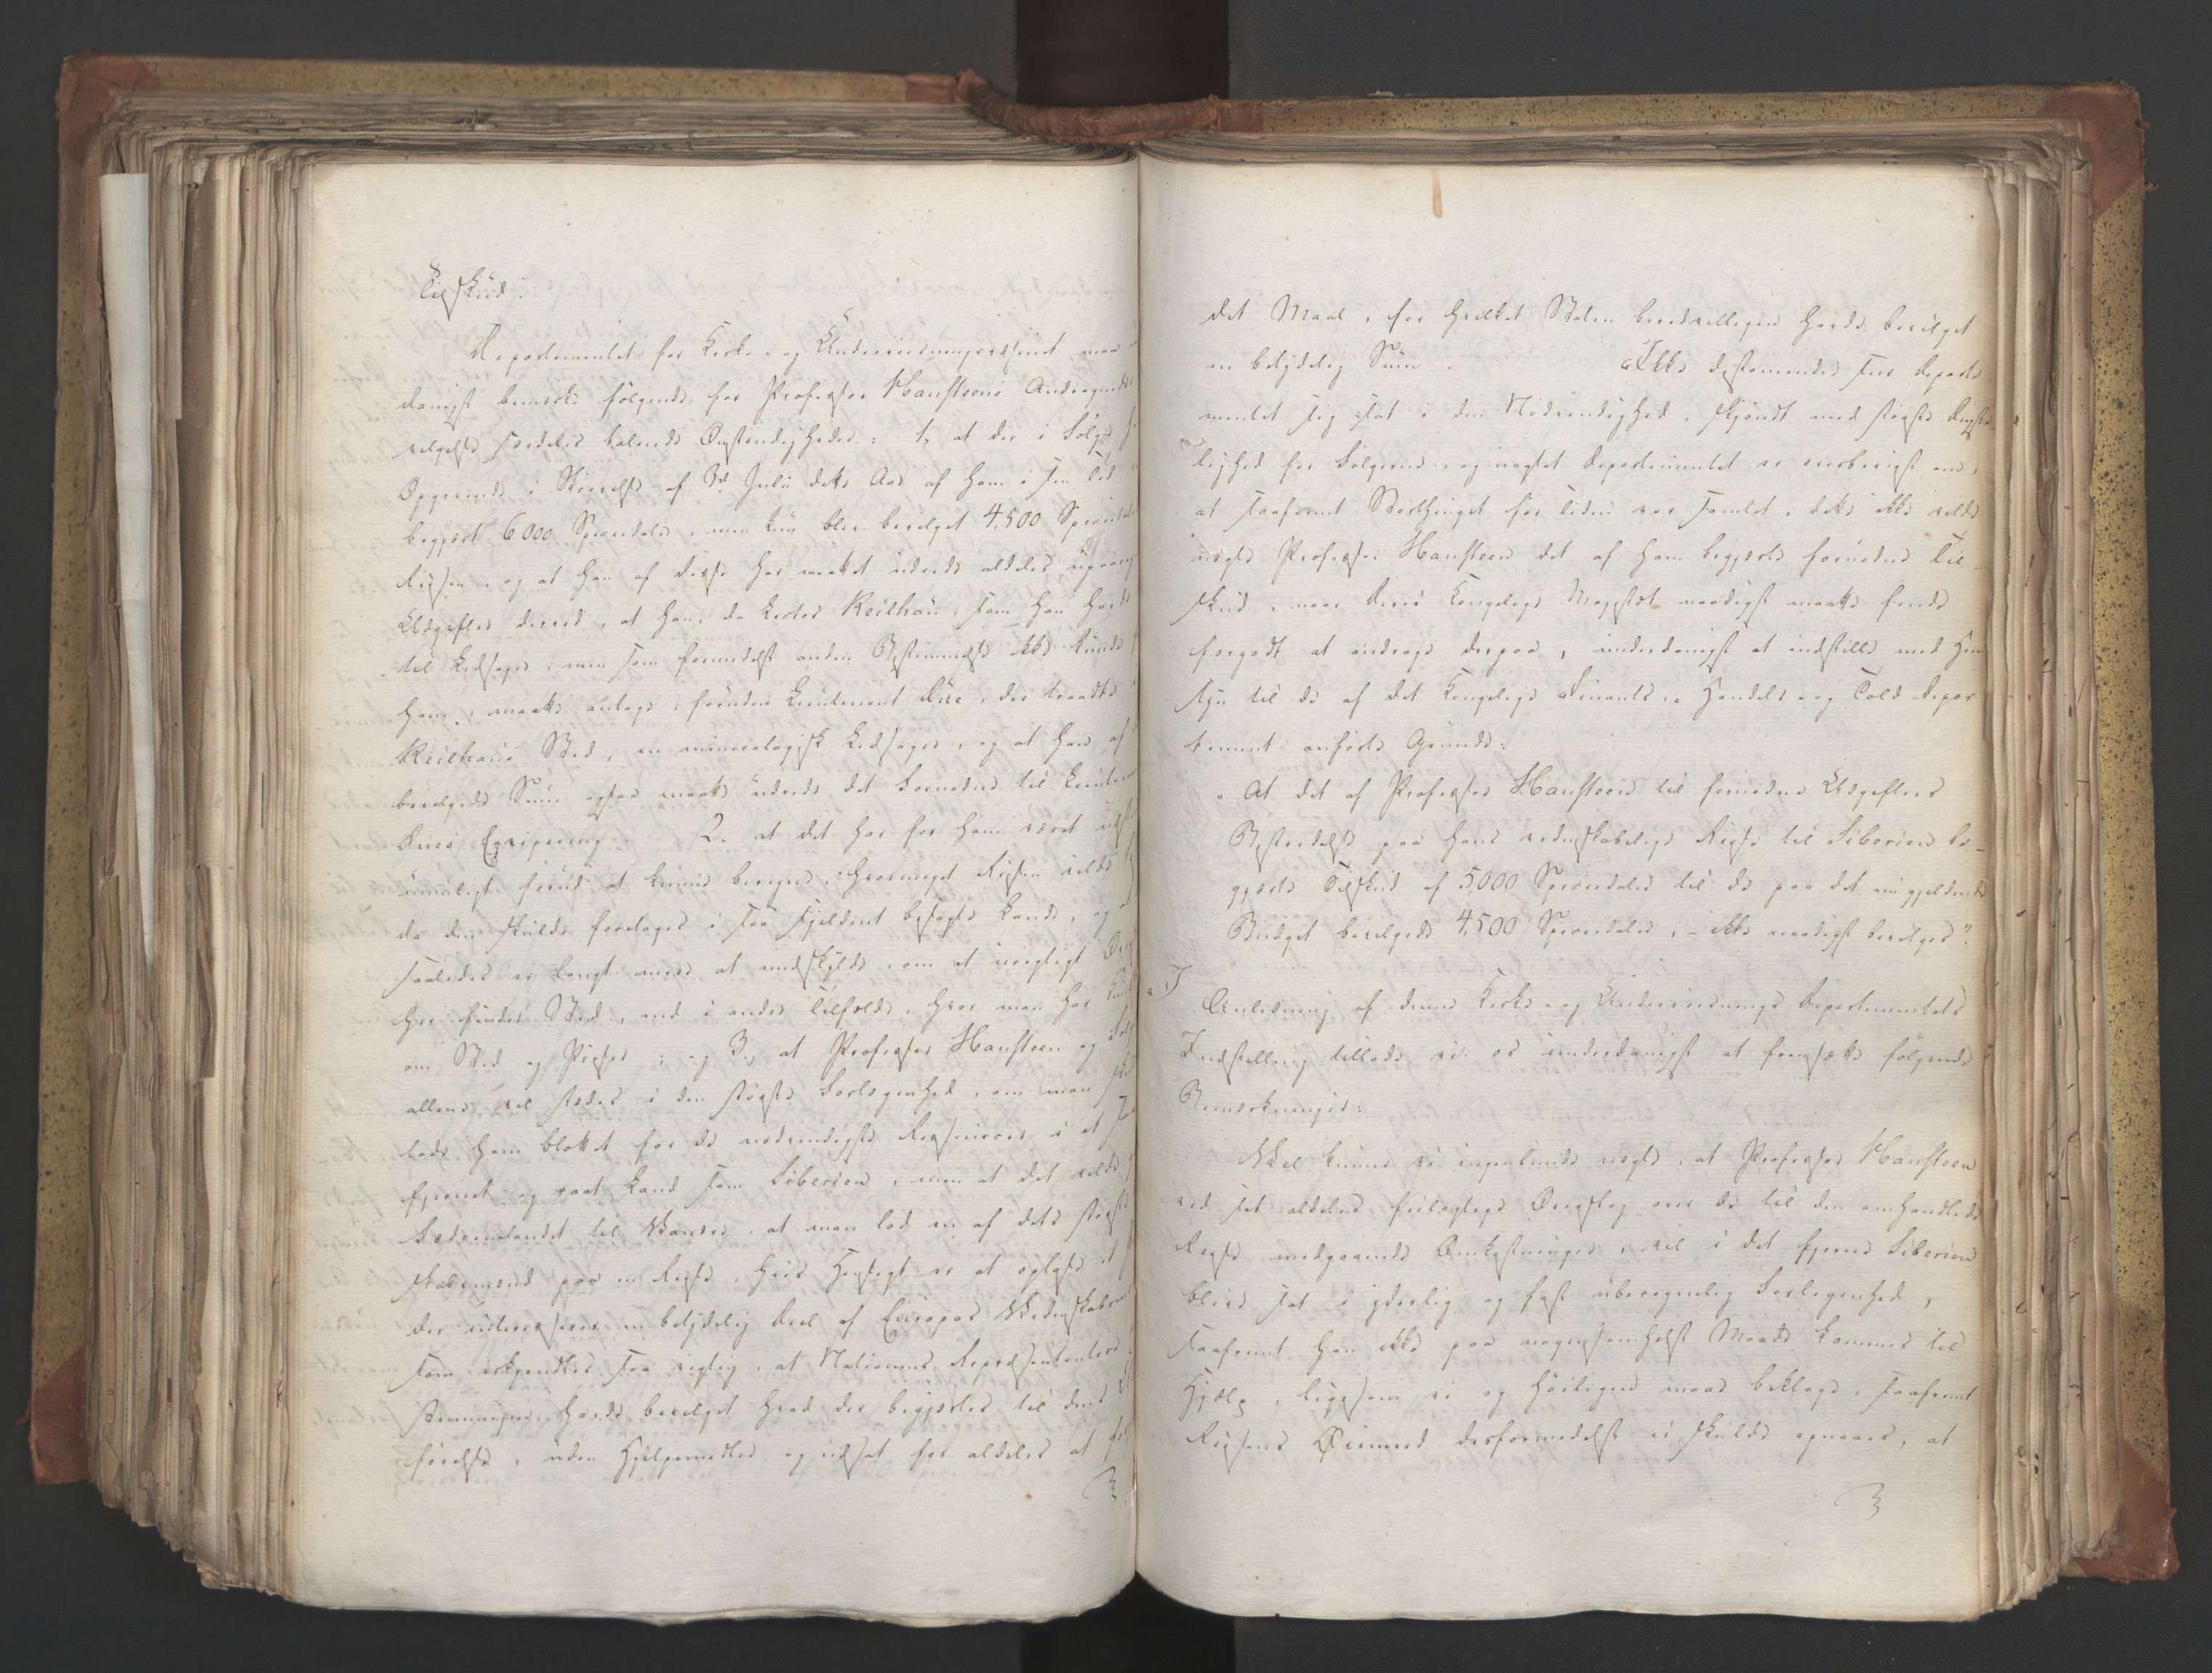 Tilskud.
Departementet for Kirke- og Underviisningsvæsenet maa
danigst bemærke følgende for Professor Hansteens Andragende
velgelse særdeles talende Omstændigheder: 1, at der i Følge
Opgivende i Skrivelse af 3d Julii dette Aar af ham i sin Tid
begjært 6000 Speciedaler, men kun blev bevilget 4,500 Speciedaler
Reisen, og at han af disse har maattet udrede aldeles
Udgifter derved, at han, da Lector Keilhau, som han havde
til Ledsager, men som formedelst anden Bestemmelse ikke kunde
ham, maatte antage, foruden Lieutenant Due, der traadte
Keilhaus Sted, en mineralogisk Ledsager, og at han af
bevilgede Sum ogsaa maatte udrede det Fornødne til
Dues Eqvipering. 2. at det har for ham været
umuligt forud at kunne beregne, hvormeget Reisen vilde
da den skulde foretages i saa sjeldent besøgte Lande, og
saaledes er langt mere at undskylde, om et urigtigt
her finder Sted, end i andre Tilfælde, hvor man har
om Sted og Priser; og 3., at Professor Hansteen og
allene vil stædes i den største Forlegenhed, om man
lade ham blottet for de nødvendigste Ressourcer i et
fjernt og raat Land som Siberien, men at det vilde
Fædrenelandet til Vanære, at man lod en af dets største
skabsmænd paa en Reise, hvis Hensigt er at oplyse et
der interesserer en betydelig Deel af Europas Videnskabsmænd
som erkjendtes saa vigtig, at Nationens Repræsentanter
stemmigen havde bevilget hvad der begjærtes til dens
førelse, uden Hjelpemidler og udsat for aldeles at
det Maal, for hvilket Staten beredvilligen havde bevilget
en betydelig Sum. Ikke destomindre seer Departe
mentet sig sat i den Nødvendighed, skjøndt med største Ængste-
lighed for Følgerne, og uagtet Departementet er overbeviist om,
at saafremt Storthinget for Tiden var samlet, dette ikke vilde
nægte Professor Hansteen det af ham begjærte fornødne Til-
skud, naar Deres Kongelige Majestæt naadigst maatte finde
forgodt at andrage derpaa, underdanigst at indstille med Hen
syn til de af det Kongelige Finants-, Handels- og Told-Depar
tement anførte Grunde:
„At det af Professor Hansteen til fornødne Udgifters
Bestridelse paa hans videnskabelige Reise til Siberien be-
gjærte Tilskud af 5,000 Speciedaler til de paa det nu gjeldende
Budget bevilgede 4,500 Speciedaler, ikke naadigst bevilges".
I
Anledning af denne Kirke- og Underviisnings Departementets
Indstilling tillade vi os underdanigst at fremsætte følgende
Bemærkninger:
Vel kunne vi ingenlunde nægte, at Professor Hansteen
ved sit aldeles feilagtige Overslag over de til den omhandlede
Reise medgaaende Omkostninger, vil i det fjerne Siberien
blive sat i yderlig og fast uberegnelig Forlegenhed,
saafremt han ikke paa nogensomhelst Maade kommer til
Hjælp, ligesom vi og høiligen maae beklage, saafremt
Reisens Øiemed desformedelst ei skulde opnaaes, at